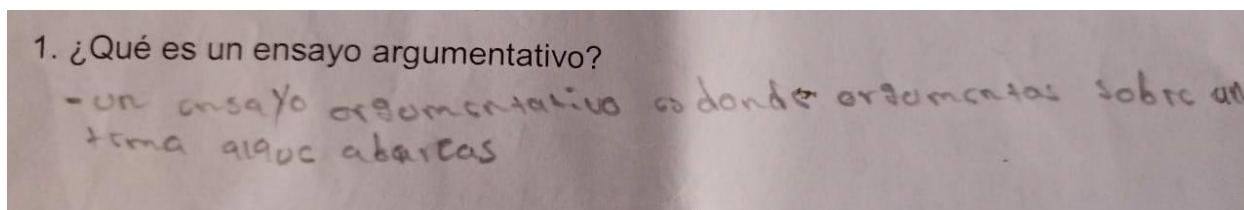 1. ¿Qué es un ensayo argumentativo?
- un ensayo argumentativo es donde argumentas sobre un
tema alque abarcas